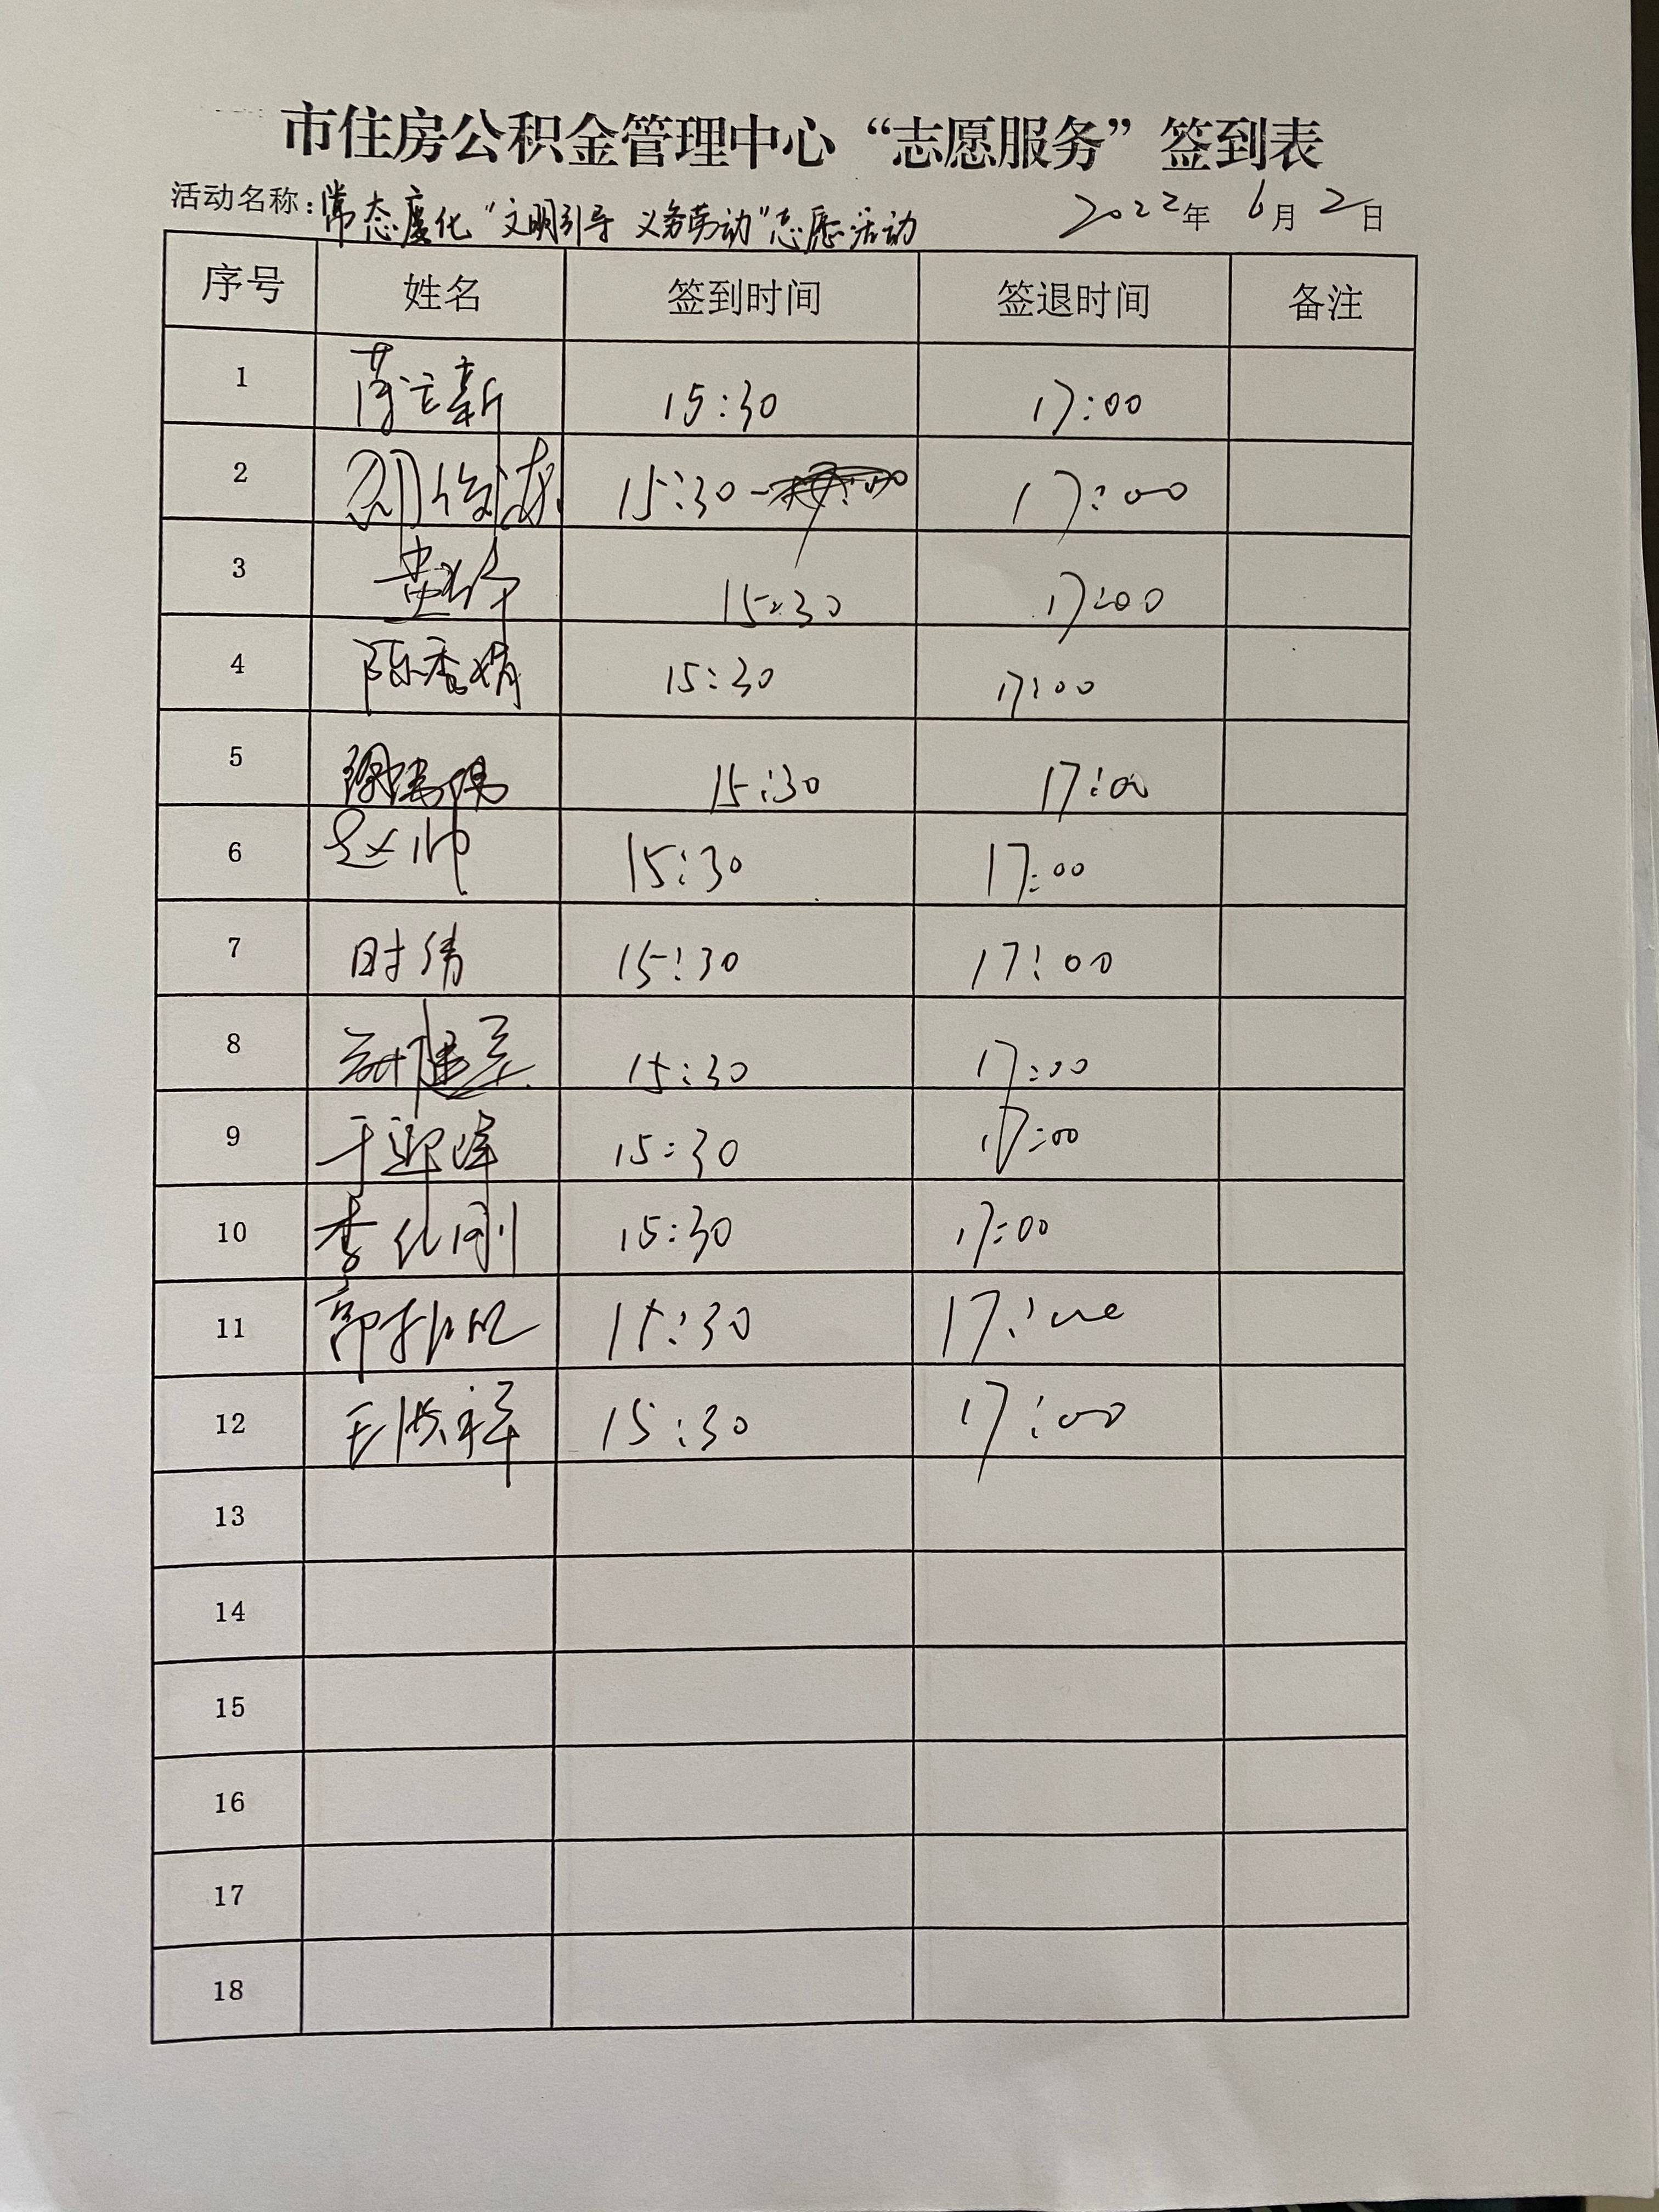 市住房公积金管理中心“志愿服务”签到表
活动名称：常态度化“文明引导 义务劳动”志愿活动 2022年 6月 2日
序号 姓名 签到时间 签退时间 备注
1 15:30 17:00
2 15:30- 17:00
3 15:30 17:00
4 陈香娟 15:30 17:00
5 15:30 17:00
6 赵帅 15:30 17:00
7 时绣 15:30 17:00
8 15:30 17:00
9 于迎泽 15:30 17:00
10 李化刚 15:30 17:00
11 15:30 17:00
12 王洪祥 15:30 17:00
13
14
15
16
17
18